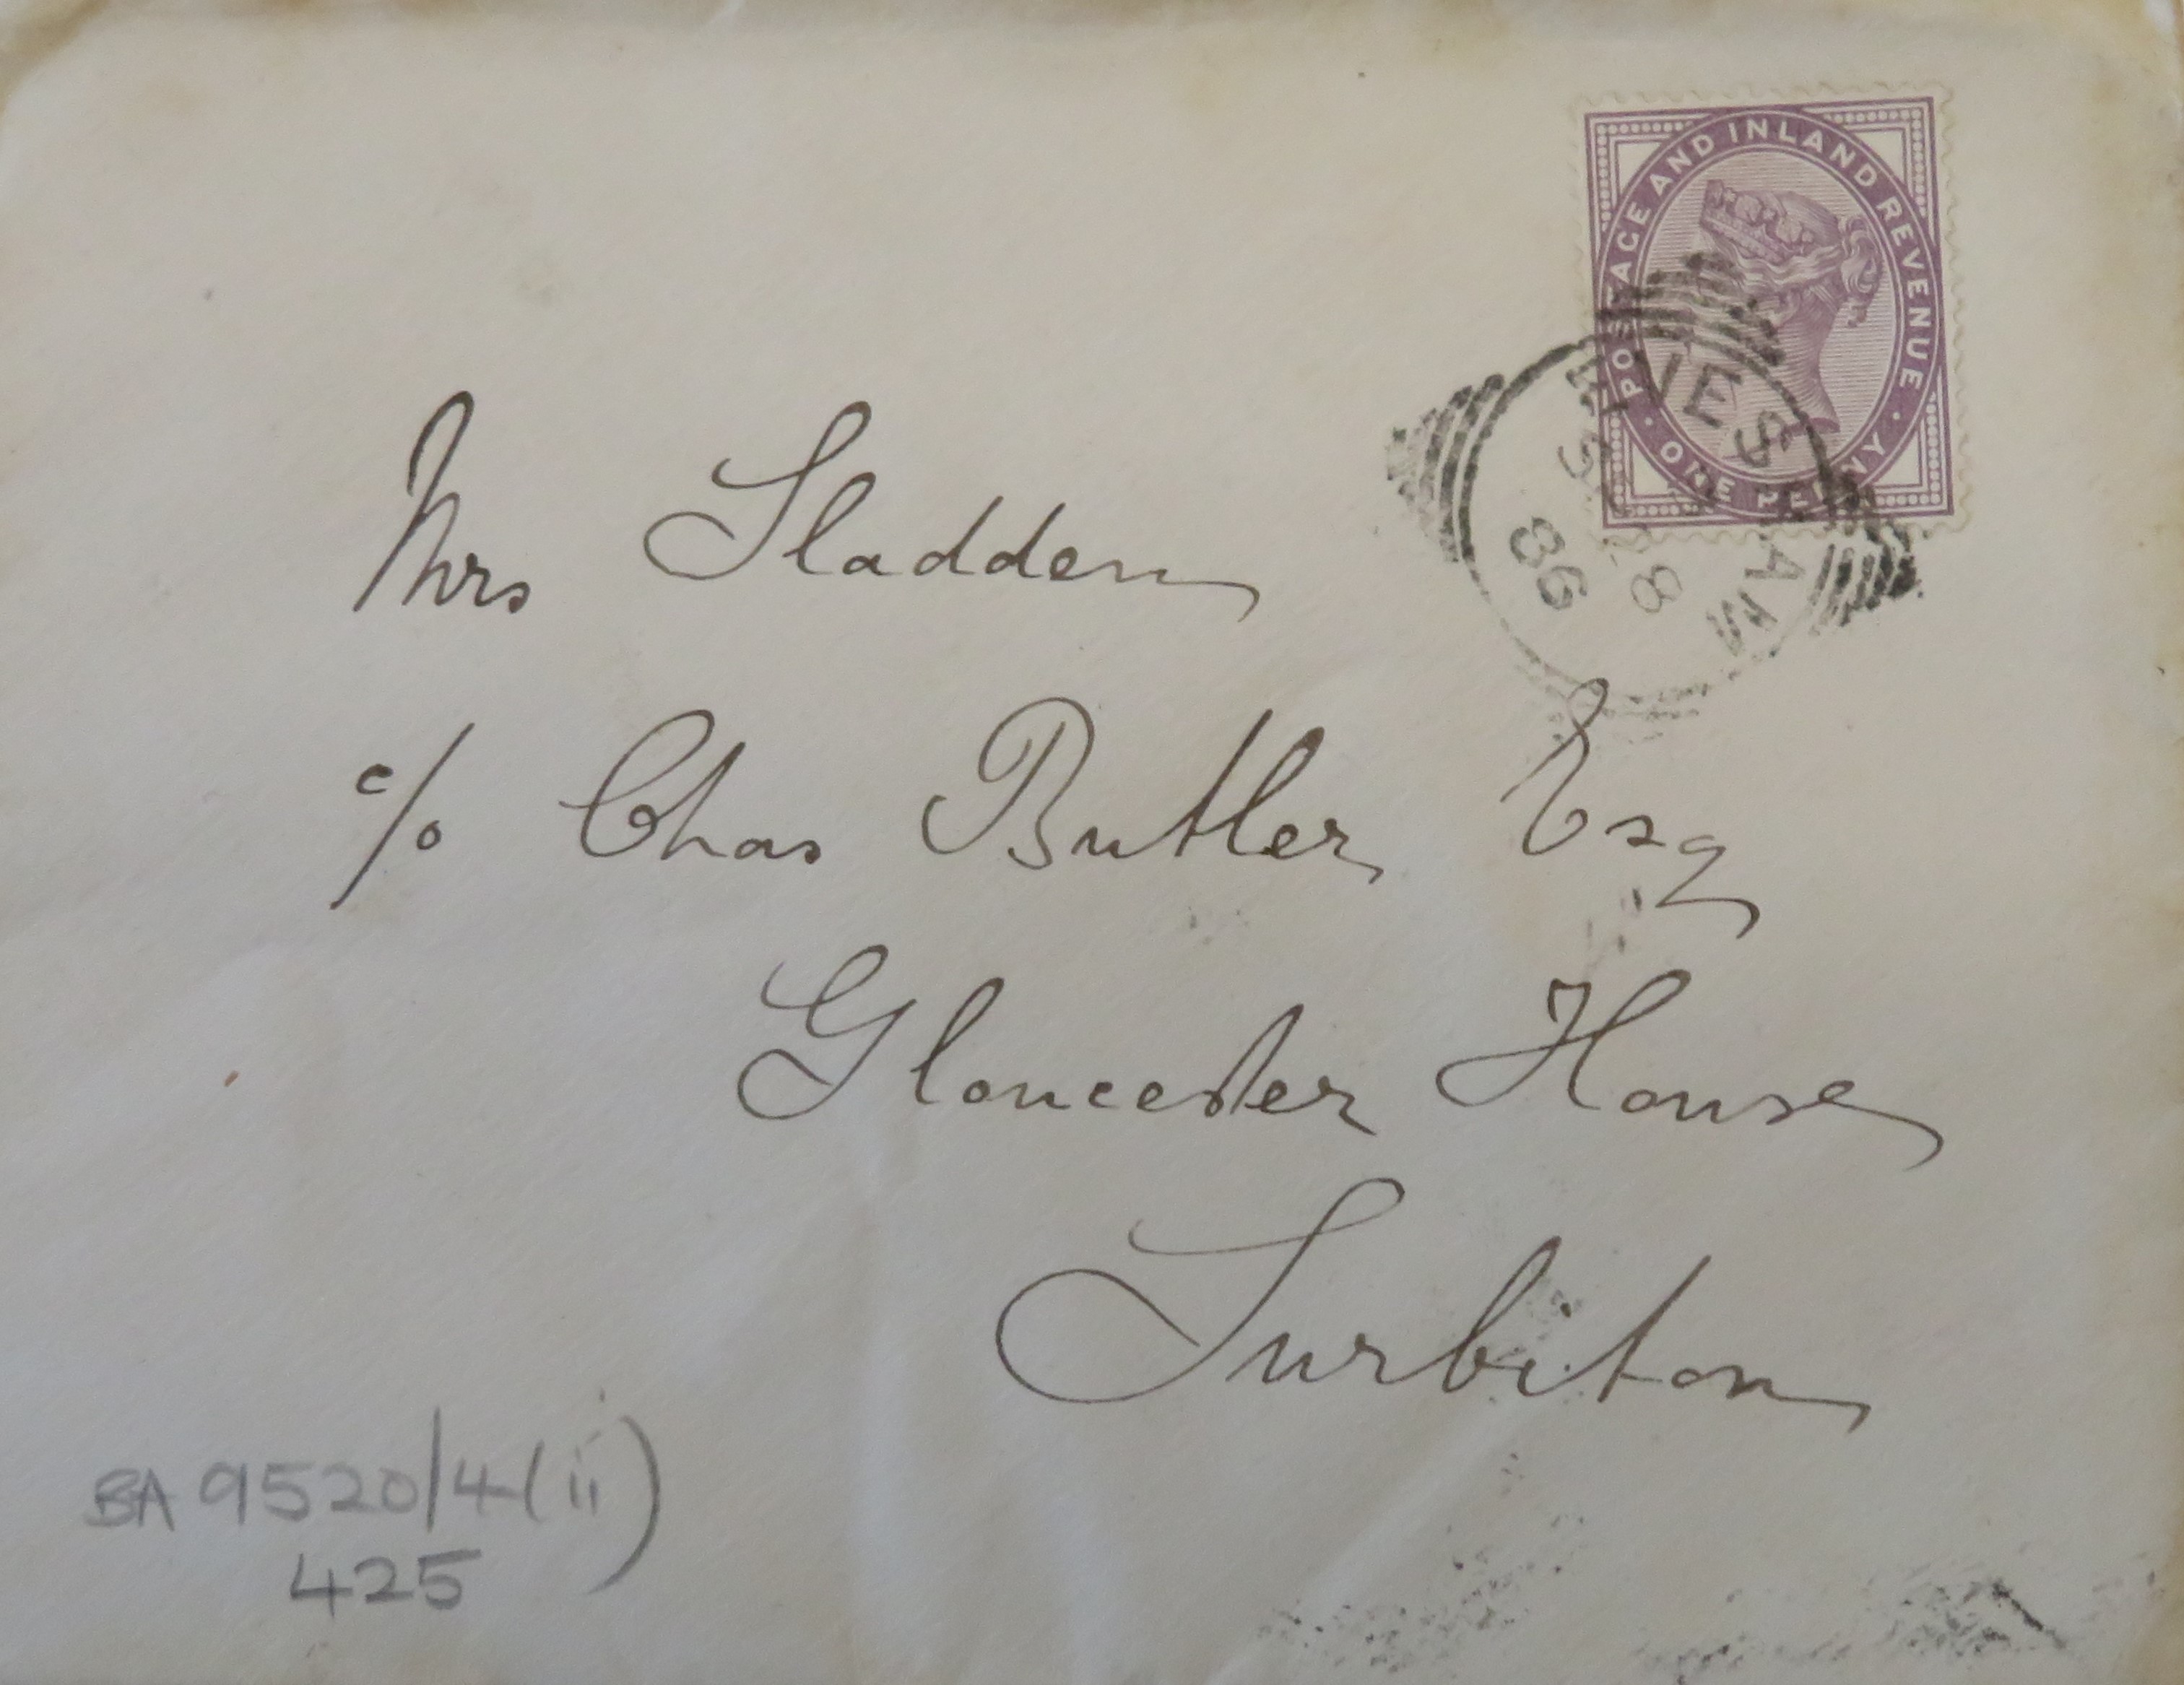 POSTAGE AND INLAND REVENUE
ONE PENNY
AM
8
86
Mrs Sladden
c/o Chas Butler Esq
Gloucester House
Surbiton
BA 9520/4(ii)
425